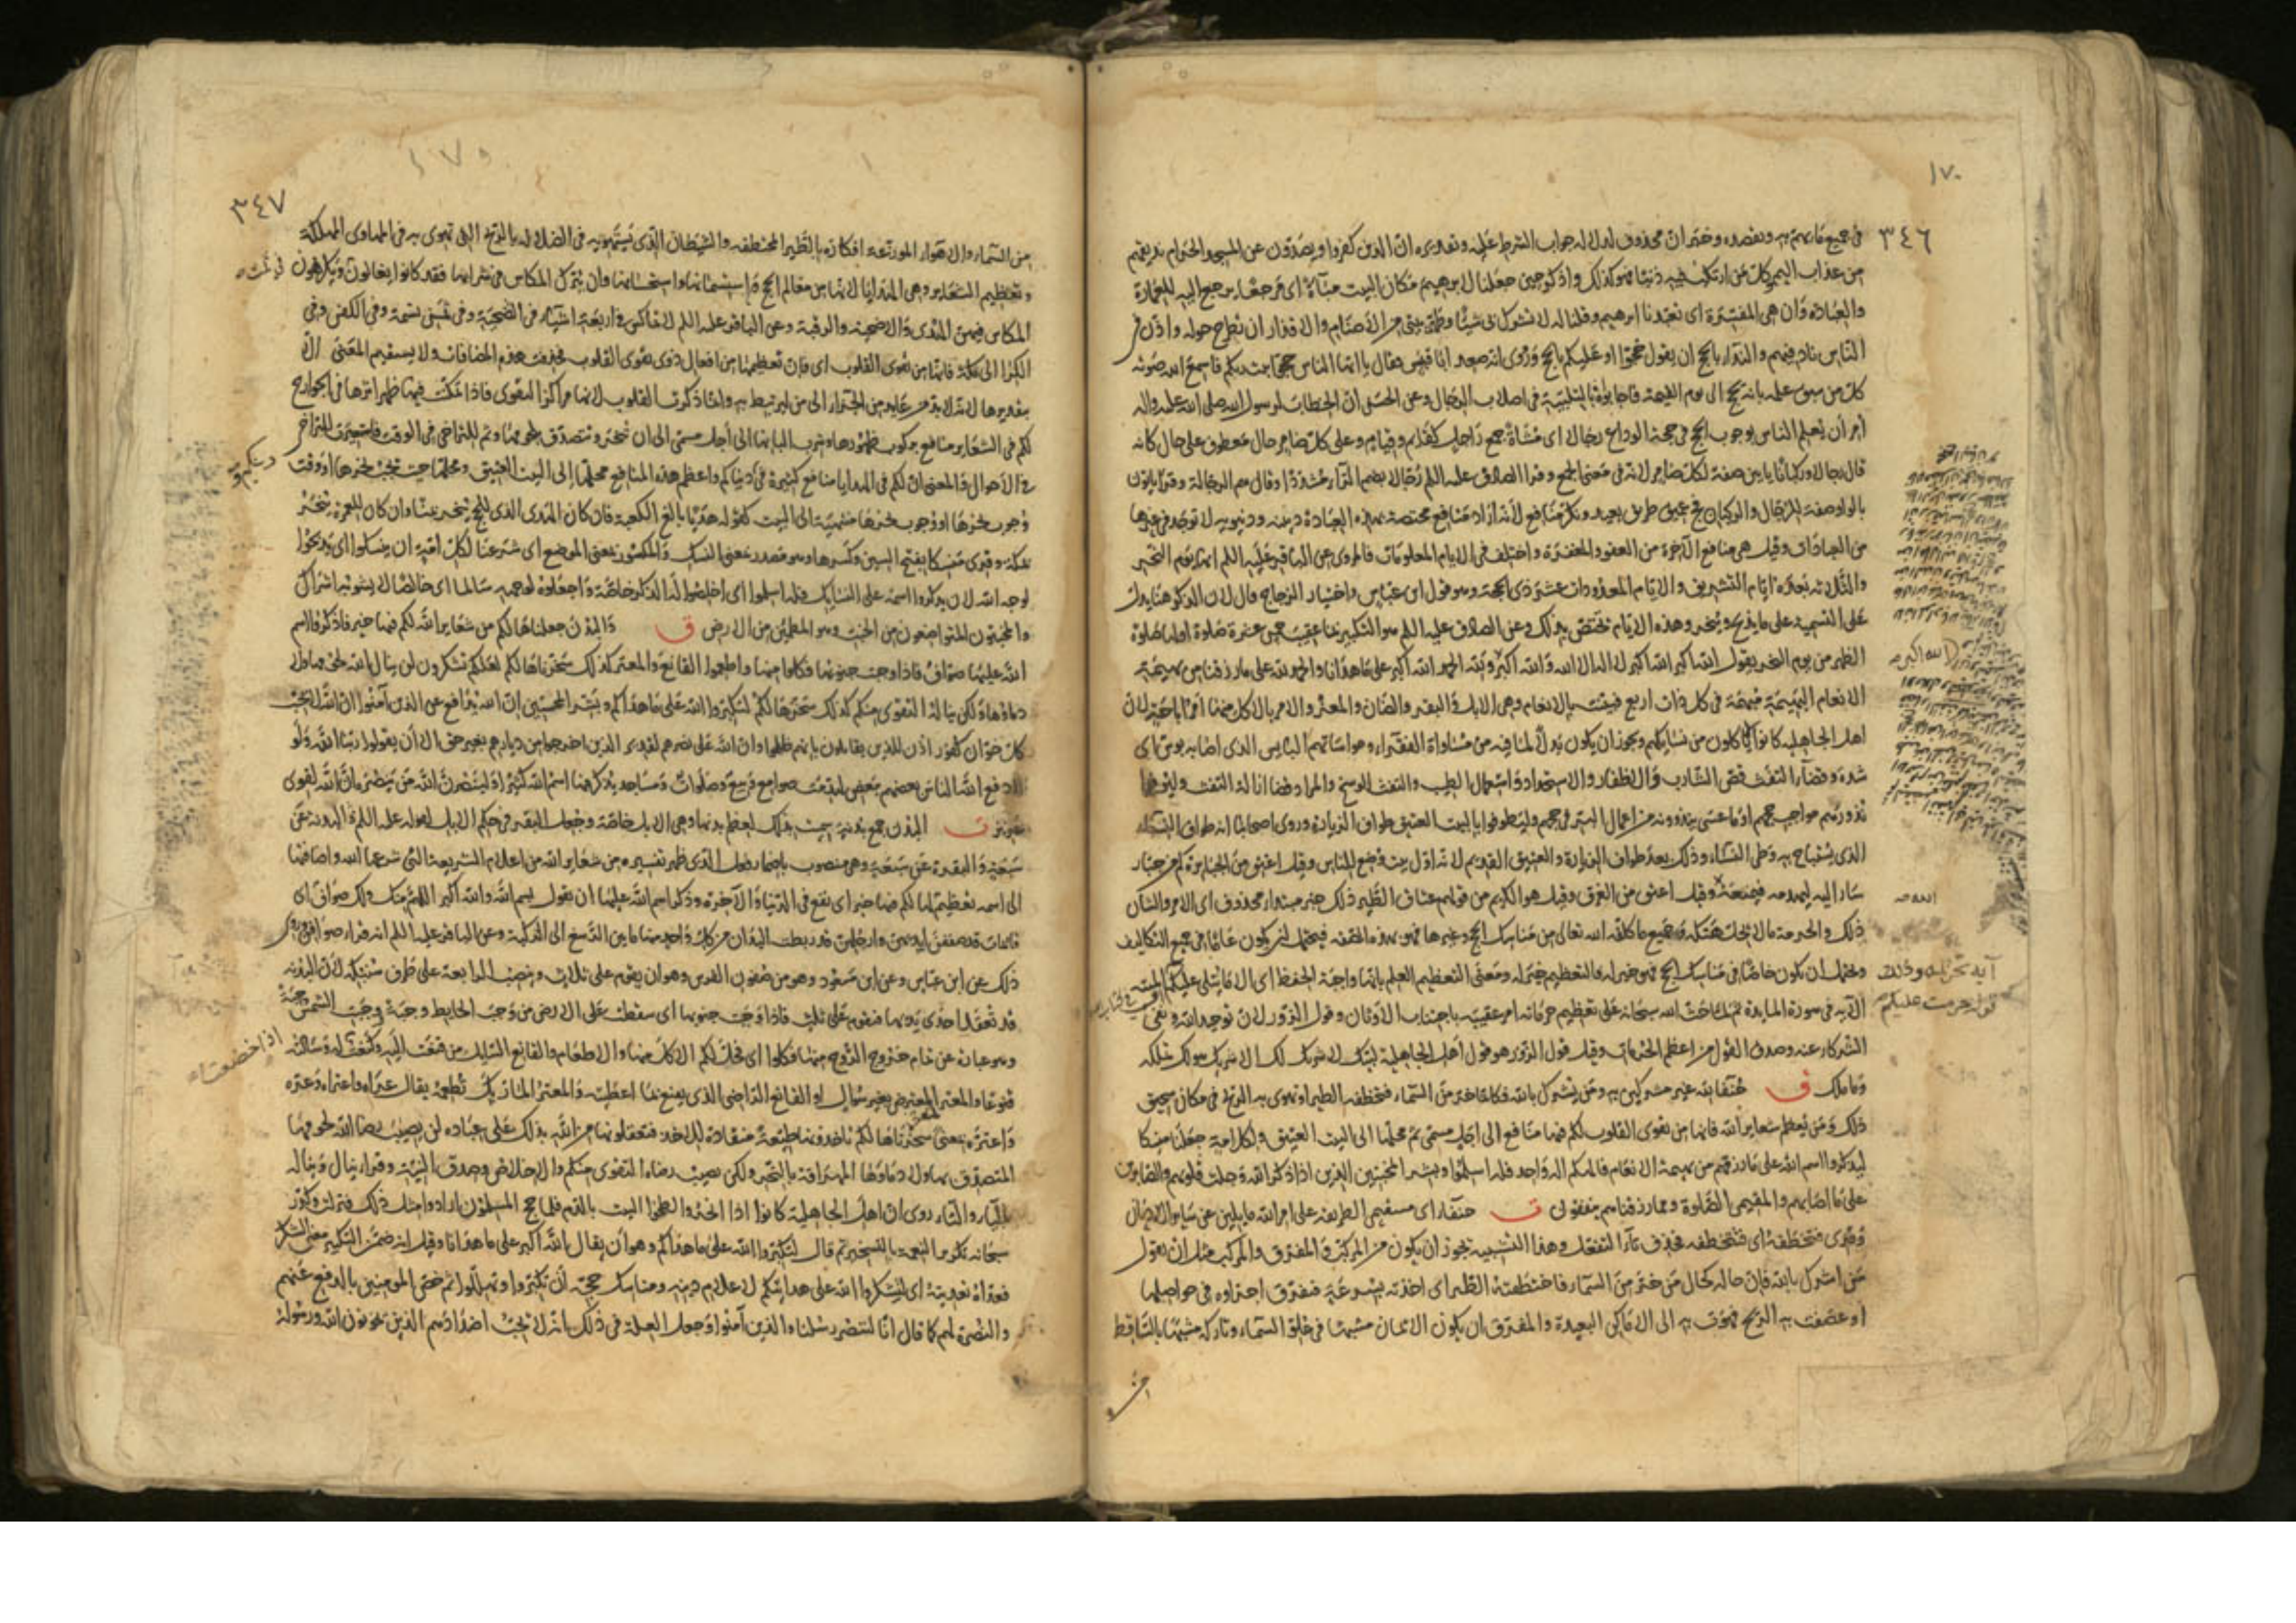 ١٧٠
٣٤٦
في جميع ما يهم به ويقصده وخبر ان محذوف لدلالة جواب الشرط عليه وتقديره ان الذين كفروا ويصدون عن المسجد الحرام نذيقهم
من عذاب اليم وكل من ارتكب فيه ذنبا فهو كذلك واذكر حين جعلنا لابرهيم مكان البيت مباءة اى مرجعا يرجع اليه للعمارة
والعبادة وان هى المفسرة اى تعبدنا ابرهيم وقلنا له لا تشرك بى شيئا وطهر بيتى من الاصنام والاقذار ان تطرح حوله واذن فى
الناس ناد فيهم والنداء بالحج ان يقول حجوا او عليكم بالحج وروى انه صعد ابا قبيس فقال يا ايها الناس حجوا بيت ربكم فاسمع الله صوته
كل من سبق علمه بانه يحج الى يوم القيمة فاجابوه بالتلبية فى اصلاب الرجال وعن الحسن ان الخطاب لرسول الله صلى الله عليه واله
امر ان يعلم الناس بوجوب الحج فى حجة الوداع رجالا اى مشاة جمع راجل كقائم وقيام وعلى كل ضامر حال معطوف على حال كانه
قال رجالا وركبانا يأتين صفة لكل ضامر لانه فى معنى الجمع وقرا الصادق عليه السلم رجالا بضم الراء مشددا وقال هم الرجالة وقرا ياتون
بالواو صفة للرجال والركبان فج عميق طريق بعيد ونكر منافع لانه اراد منافع مختصة بهذه العبادة دينية ودنيوية لا توجد فى غيرها
من العبادات وقيل هى منافع الآخرة من العفو والمغفرة واختلف فى الايام المعلومات فالمروى عن الباقر عليه السلم انها يوم النحر
والثلاثة بعده ايام التشريق والايام المعدودات عشر ذى الحجة وهو قول ابن عباس واختيار الزجاج قال لان الذكر هنا يدل
على التسمية على ما يذبح وينحر وهذه الايام تختص بذلك وعن الصادق عليه السلم هو التكبير بمنا عقيب خمس عشرة صلوة اولها صلوة
الظهر من يوم النحر يقول الله اكبر الله اكبر لا اله الا الله والله اكبر ولله الحمد الله اكبر على ما هدانا والحمد لله على ما رزقنا من بهيمة
الانعام البهيمة مبهمة فى كل ذات اربع فبينت بالانعام وهى الابل والبقر والضان والمعز والامر بالاكل منها امر اباحة لان
اهل الجاهلية كانوا لا ياكلون من نسائكهم ويجوز ان يكون ندبا لما فيه من مساواة الفقراء ومواساتهم البايس الذى اصابه بوس اى
شدة وقضاء التفث قص الشارب والاظفار والاستحداد واستعمال الطيب والتفث الوسخ والمراد قضا ازالة التفث وليوفوا
نذورهم مواجب حجهم او ما عسى ينذرونه من اعمال البر فى حجهم وليطوفوا بالبيت العتيق طواف الزيارة وروى اصحابنا انه طواف النساء
الذى يستباح به وطى النساء وذلك بعد طواف الزيارة والعتيق القديم لانه اول بيت وضع للناس وقيل اعتق من الجبابرة كم من جبار
سار اليه ليهدمه فمنعه وقيل اعتق من الغرق وقيل هو الكريم من قولهم عتاق الطير ذلك خبر مبتداء محذوف اى الامر والشان
ذلك والحرمة ما لا يحل هتكه وجميع ما كلفه الله تعالى من مناسك الحج وغيرها فهو بهذه الصفة فيحتمل ان يكون عاما فى جميع التكاليف
ويحتمل ان يكون خاصا فى مناسك الحج فهو خير له فالتعظيم خير له ومعنى التعظيم العلم بانها واجبة الحفظ اى الا ما يتلى عليكم
الآية فى سورة المايدة ثم لما حث الله سبحانه على تعظيم حرماته امر عقيبه باجتناب الاوثان وقول الزور لان توحيد الله ونفى
الشركاء عنه وصدق القول من اعظم الحرمات وقيل قول الزور هو قول اهل الجاهلية لبيك لا شريك لك الا شريك هو لك تملكه
وما ملك ق حنفاء لله غير مشركين به ومن يشرك بالله فكانما خر من السماء فتخطفه الطير او تهوى به الريح فى مكان سحيق
ذلك ومن يعظم شعاير الله فانها من تقوى القلوب لكم فيها منافع الى اجل مسمى ثم محلها الى البيت العتيق ولكل امة جعلنا منسكا
ليذكروا اسم الله على ما رزقهم من بهيمة الانعام فالهكم اله واحد فله اسلموا وبشر المخبتين الذين اذا ذكر الله وجلت قلوبهم والصابرين
على ما اصابهم والمقيمى الصلوة ومما رزقناهم ينفقون ت حنفاء اى مستقيمى الطريقة على امر الله مايلين عن ساير الاديان
وقرى فتخطفه اى فتتخطفه فحذف تاء التفعل وهذا التشبيه يجوز ان يكون من المركب والمفرق والمركب مثل ان يقول
من اشرك بالله فان حاله كحال من خر من السماء فاختطفته الطير اى اخذته بسرعة فتفرق اجزاوه فى حواصلها
او عصفت به الريح فهوت به الى الاماكن البعيدة والمفرق ان يكون الايمان مشبها فى علوه السماء وتاركه مشبها بالساقط
الله اكبر
آية تحريمه وذلك
قوله حرمت عليكم
٣٤٧
من السماء والاهواء الموزعة افكاره بالطير المختطفة والشيطان الذى يستهويه فى الضلالة بالريح التى تهوى به فى المهاوى المهلكة
وتعظيم الشعاير وهى الهدايا لانها من معالم الحج استسمانها واستحسانها وان يترك المكاس فى شرائها فقد كانوا يغالون ويكرهون
المكاس فيهن الهدى والاضحية والرقبة وعن الباقر عليه السلم لا تماكس فى اربعة اشياء فى الاضحية وفى ثمن نسمة وفى الكفن وفى
الكرا الى مكة فانها من تقوى القلوب اى فان تعظيمها من افعال ذوى تقوى القلوب فحذفت هذه المضافات ولا يستقيم المعنى الا
بتقديرها لانه لا بد من عايد من الجزاء الى من ليرتبط به وانما ذكرت القلوب لانها مراكز التقوى فاذا تمكنت فيها ظهر اثرها فى الجوارح
لكم فى الشعاير منافع بركوب ظهورها وشرب البانها الى اجل مسمى الى ان تنحر ويتصدق بلحومها وثم للتراخى فى الوقت فاستعيرت للتراخى
فى الاحوال والمعنى ان لكم فى الهدايا منافع كثيرة فى دنياكم واعظم هذه المنافع محلها الى البيت العتيق ومحلها حيث يجب نحرها او وقت
وجوب نحرها او وجوب نحرها منتهية الى البيت كقوله هديا بالغ الكعبة فان كان الهدى الذى للحج ينحر بمنا وان كان للعمرة ينحر
بمكة وقرى منسكا بفتح السين وكسرها وهو مصدر بمعنى النسك والمكسور بمعنى الموضع اى شرعنا لكل امة ان ينسكوا اى يذبحوا
لوجه الله لان يذكروا اسمه على النسايك فله اسلموا اى اخلصوا له الذكر خاصة واجعلوه لوجهه سالما اى خالصا لا يشوبه اشراك
والمخبتون المتواضعون من الخبت وهو المطمئن من الارض ق والبدن جعلناها لكم من شعاير الله لكم فيها خير فاذكروا اسم
الله عليها صواف فاذا وجبت جنوبها فكلوا منها واطعموا القانع والمعتر كذلك سخرناها لكم لعلكم تشكرون لن ينال الله لحومها ولا
دماؤها ولكن يناله التقوى منكم كذلك سخرها لكم لتكبروا الله على ما هداكم وبشر المحسنين ان الله يدافع عن الذين آمنوا ان الله لا يحب
كل خوان كفور اذن للذين يقاتلون بانهم ظلموا وان الله على نصرهم لقدير الذين اخرجوا من ديارهم بغير حق الا ان يقولوا ربنا الله ولو
لا دفع الله الناس بعضهم ببعض لهدمت صوامع وبيع وصلوات ومساجد يذكر فيها اسم الله كثيرا ولينصرن الله من ينصره ان الله لقوى
عزيز ت البدن جمع بدنة سميت بذلك لعظم بدنها وهى الابل خاصة وجعل البقر فى حكم الابل لقوله عليه السلم البدنة عن
سبعة والبقرة عن سبعة وهى منصوب باضمار فعل الذى ظهر تفسيره من شعاير الله من اعلام الشريعة التى شرعها الله واضافتها
الى اسمه تعظيم لها لكم فيها خير اى نفع فى الدنيا والآخرة وذكر اسم الله عليها ان يقول بسم الله والله اكبر اللهم منك ولك صواف اى
قائمات قد صففن ايديهن وارجلهن قد ربطت اليدان من كل واحد منها ما بين الرسغ الى الركبة وعن الباقر عليه السلم انه قرا صوافن وروى
ذلك عن ابن عباس وعن ابن مسعود وهو من صفون الفرس وهو ان يقوم على ثلاث وينصب الرابعة على طرف سنبكه لان البدنة
قد تعقل احدى يديها فتقوم على ثلث فاذا وجبت جنوبها اى سقطت على الارض من وجب الحايط وجبة ووجبت الشمس جبة
وهو عبارة عن تمام خروج الروح منها فكلوا اى فحل لكم الاكل منها والاطعام والقانع السايل من قنعت اليه وكنعت له وسالته
قنوعا والمعتر المعترض بغير سؤال او القانع الراضى الذى يقنع بما اعطيته والمعتر المار بك تطعمه يقال عراه واعتراه وعره
واعتره بمعنى سخرناها لكم تاخذونها طيعة منقادة للاخذ فتعقلونها من الله بذلك على عباده لن يصيب رضا الله لحومها
المتصدق بها ولا دماؤها المهراقة بالنحر ولكن يصيب رضاه التقوى منكم والاخلاص وصدق النية وقرى ينال ويناله
بالياء والتاء روى ان اهل الجاهلية كانوا اذا نحروا لطخوا البيت بالدم فلما حج المسلمون ارادوا مثل ذلك فنزلت وكرر
سبحانه تذكير النعمة بالتسخير ثم قال لتكبروا الله على ما هداكم وهو ان يقال الله اكبر على ما هدانا وقيل انه ضمن التكبير معنى الشكر
فعداه تعديته اى لتشكروا الله على هدايتكم لاعلام دينه ومناسك حجه لان تكبروا وتهللوا ثم خص المومنين بالدفع عنهم
والنصرة لهم كما قال انا لننصر رسلنا والذين آمنوا وجعل العلة فى ذلك انه لا يحب اضدادهم الذين يخونون الله ورسوله
اذا خضعت له